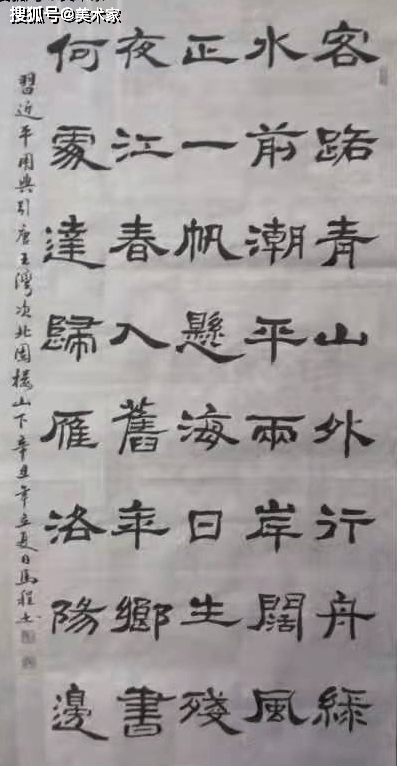 搜狐号@美术家
客路青山外行舟綠
水前潮平兩岸闊風
正一帆懸海日生殘
夜江春入舊年鄉書
何處達歸雁洛陽邊
習近平用典引唐王灣次北固樓山下辛丑年立夏日馬程書